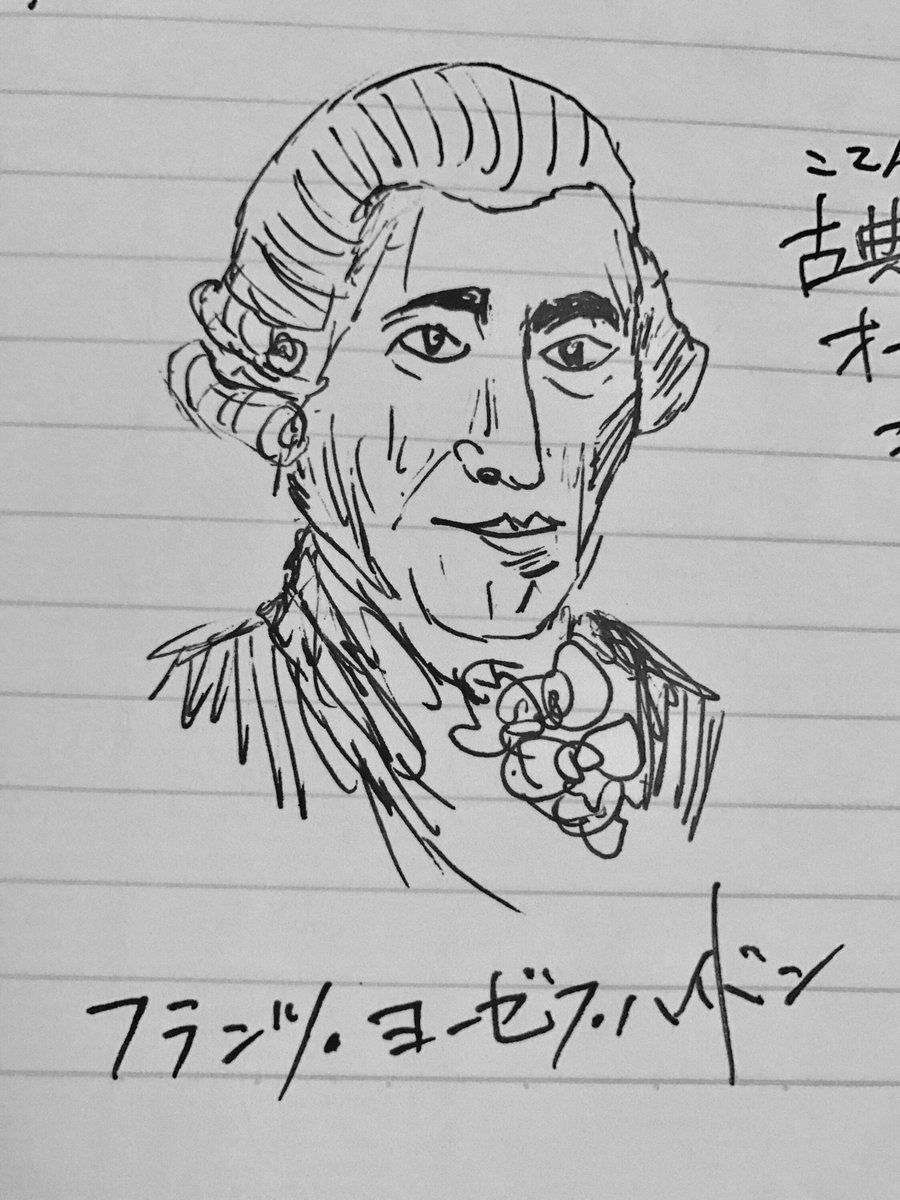 こてん
古典
オー
フランツ・ヨーゼフ・ハイドン